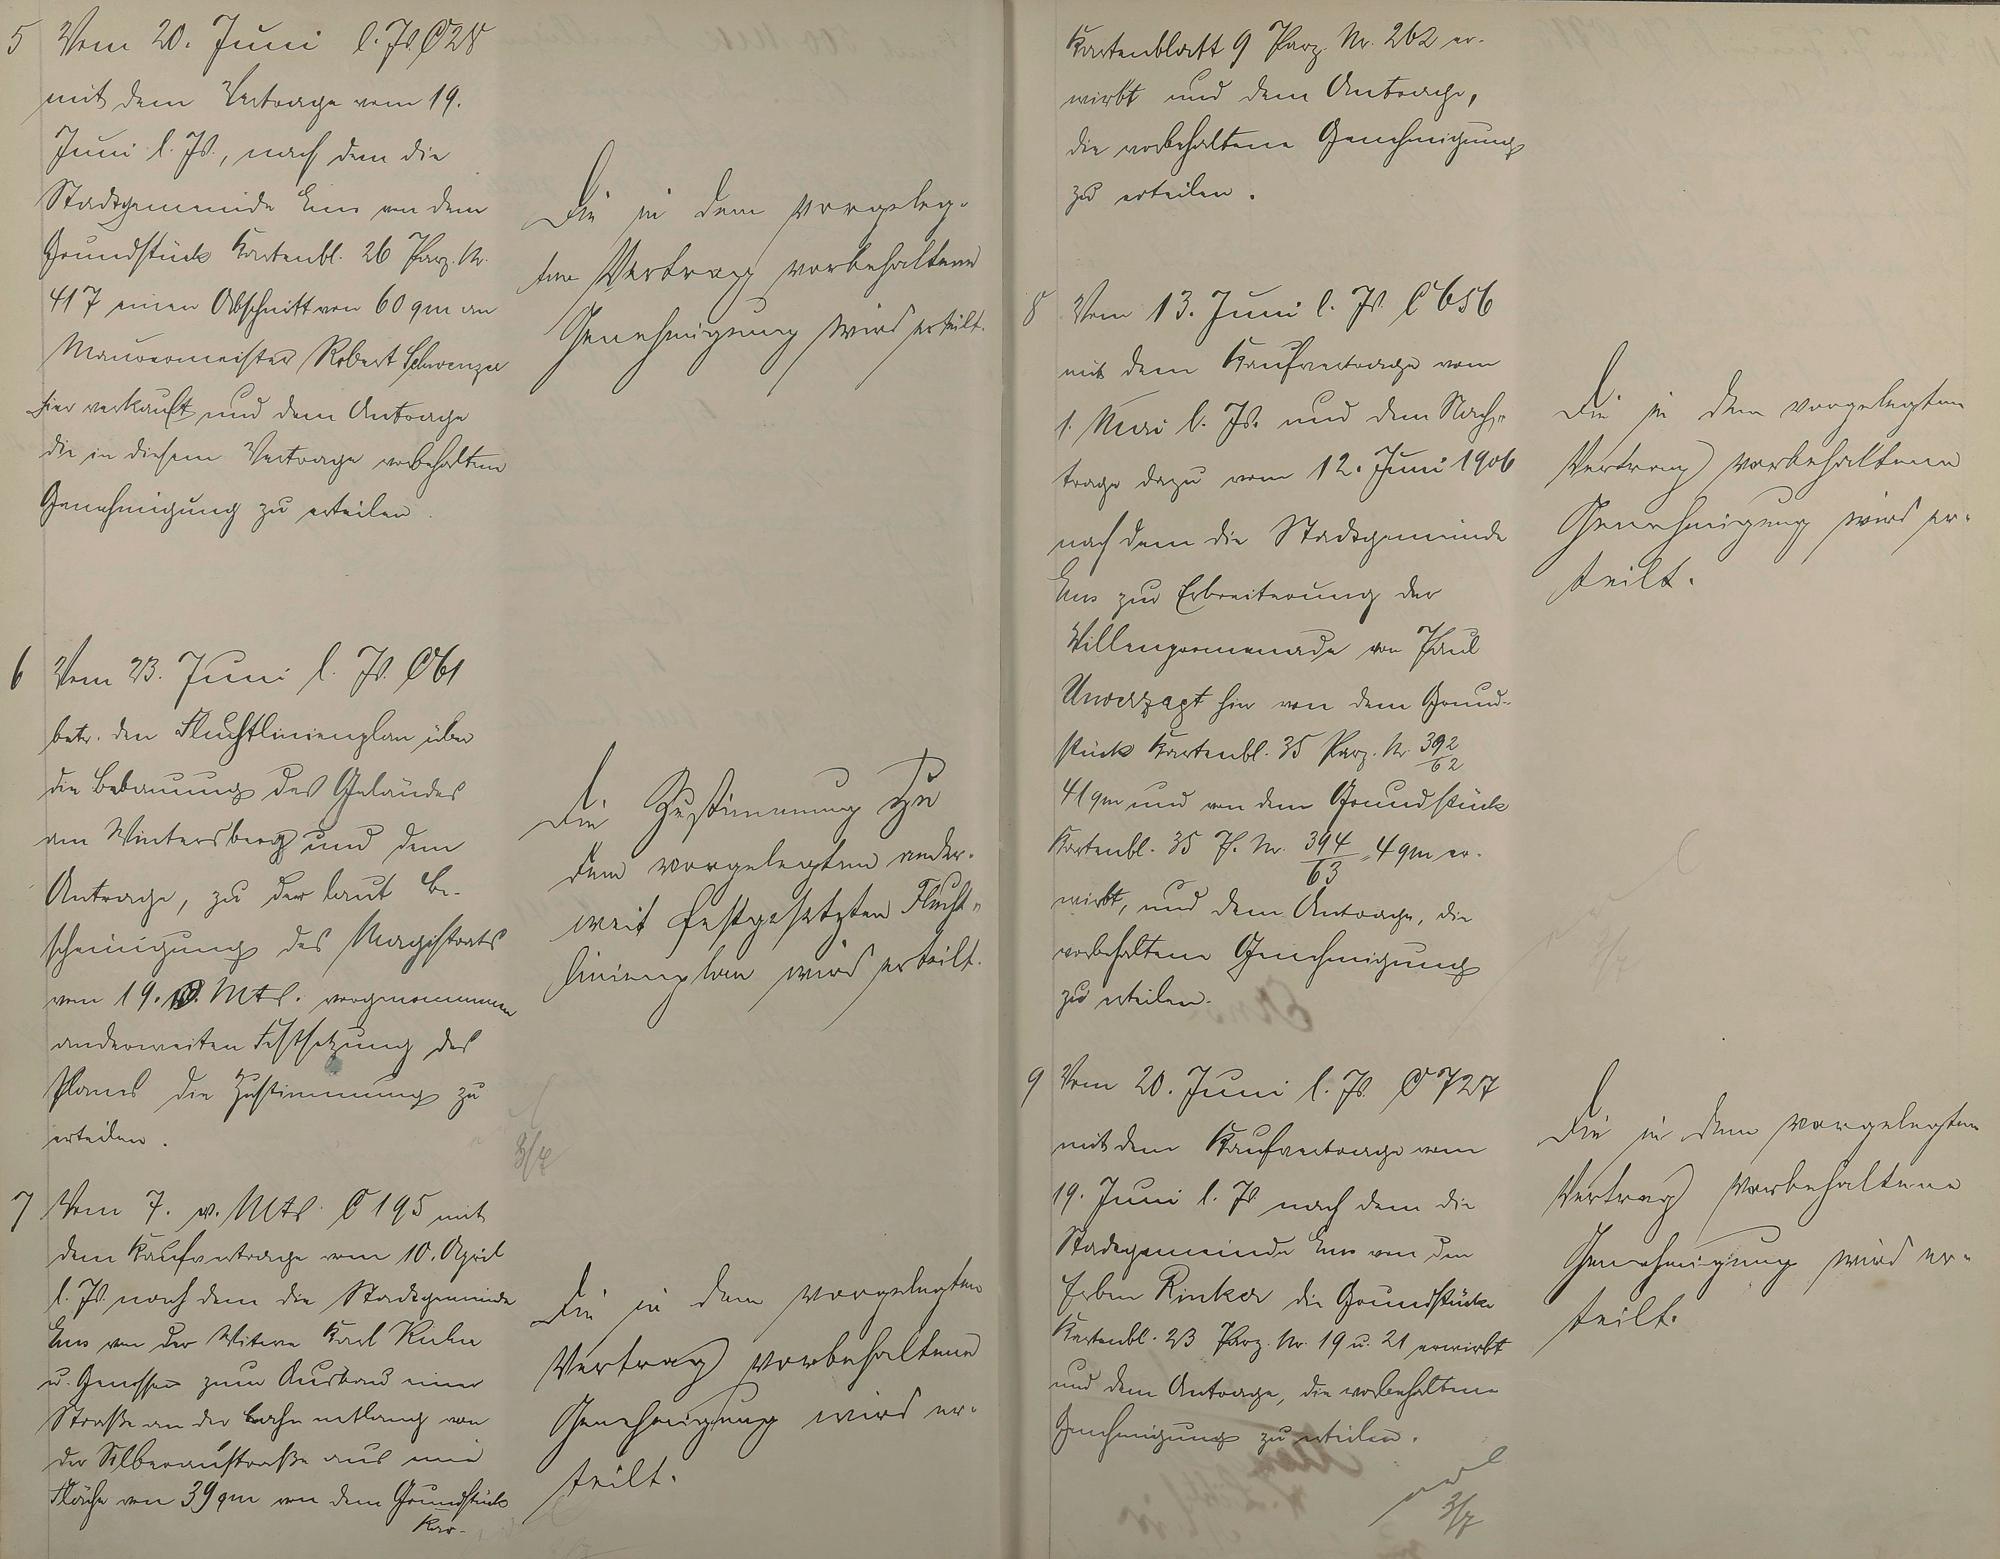 5 Vom 20. Juni l. Js. C 28
mit dem Vertrage vom 19.
Juni l. Js., nach dem die
Stadtgemeinde Ems von dem
Grundstück Kartenbl. 26 Parz. Nr.
417 einen Abschnitt von 60 qm an
Maurermeister Robert Schwenzer
hier verkauft und dem Antrage
die in diesem Vertrage vorbehaltene
Genehmigung zu erteilen.
Die in dem vorgeleg-
ten Vertrag vorbehaltene
Genehmigung wird erteilt.
6 Vom 23. Juni l. Js. C 61
betr. den Fluchtlinienplan über
die Bebauung des Geländes
am Wintersberg und dem
Antrage, zu der laut Be-
scheinigung des Magistrats
vom 19. v. Mts. vorgenommenen
anderweiten Festsetzung des
Planes die Zustimmung zu
erteilen.
Die Zustimmung zu
dem vorgelegten ander-
weit festgesetzten Flucht-
linienplan wird erteilt.
3/7
7 Vom 7. v. Mts. C 195 mit
dem Kaufvertrage vom 10. April
l. Js. nach dem die Stadtgemeinde
Ems von der Witwe Karl
u. Genossen zum Ausbau einer
Straße an der Bahn entlang von
der Silberaustraße aus eine
Fläche von 39 qm von dem Grundstück
Kar-
Die in dem vorgelegten
Vertrag vorbehaltene
Genehmigung wird er-
teilt.
Kartenblatt 9 Parz. Nr. 262 er-
wirbt und dem Antrage,
die vorbehaltene Genehmigung
zu erteilen.
8 Vom 13. Juni l. Js. C 656
mit dem Kaufvertrage vom
1. Mai l. Js. und dem Nach-
trage dazu vom 12. Juni 1906
nach dem die Stadtgemeinde
Ems zur Erbreiterung der
Villenpromenade von Paul
Unverzagt hier von dem Grund-
stück Kartenbl. 35 Parz. Nr. 392/62
41 qm und von dem Grundstück
Kartenbl. 35 P. Nr. 394/63 4 qm er-
wirbt, und dem Antrage, die
vorbehaltene Genehmigung
zu erteilen.
Die in dem vorgelegten
Vertrag vorbehaltene
Genehmigung wird er-
teilt.
9 Vom 20. Juni l. Js. C 727
mit dem Kaufvertrage vom
19. Juni l. Js. nach dem die
Stadtgemeinde Ems von den
Erben Rinker die Grundstücke
Kartenbl. 23 Parz. Nr. 19 u. 21 erwirbt
und dem Antrage, die vorbehaltene
Genehmigung zu erteilen.
Die in dem vorgelegten
Vertrag vorbehaltene
Genehmigung wird er-
teilt.
3/7